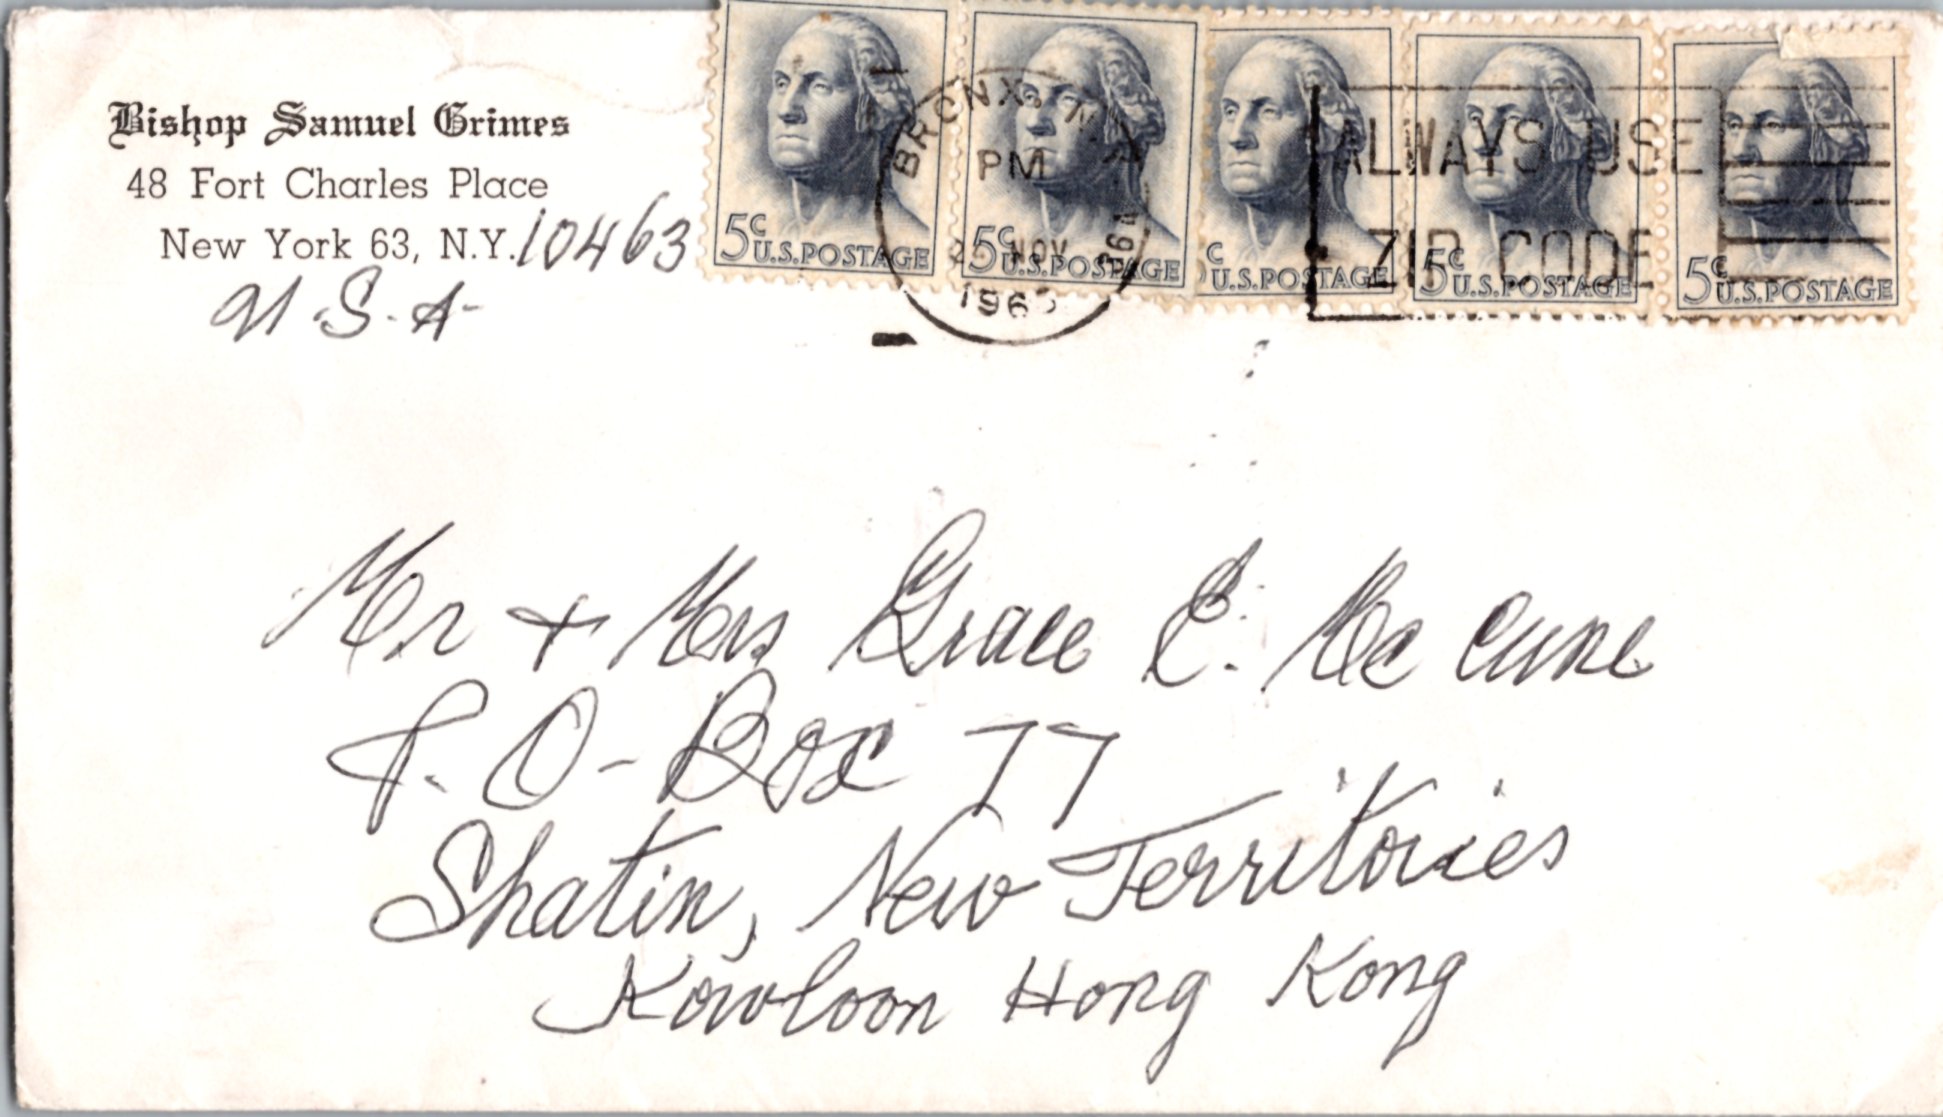 Bishop Samuel Grimes
48 Fort Charles Place
New York 63, N.Y. 10463
U.S.A-
5c U.S.POSTAGE
5c U.S.POSTAGE
c U.S.POSTAGE
5c U.S.POSTAGE
5c U.S.POSTAGE
BRONX, N.Y.
PM
NOV
196
ALWAYS USE
ZIP CODE
Mr + Mrs Grace E. Mc Cune
P. O- Box 77
Shatin, New Territories
Kowloon Hong Kong